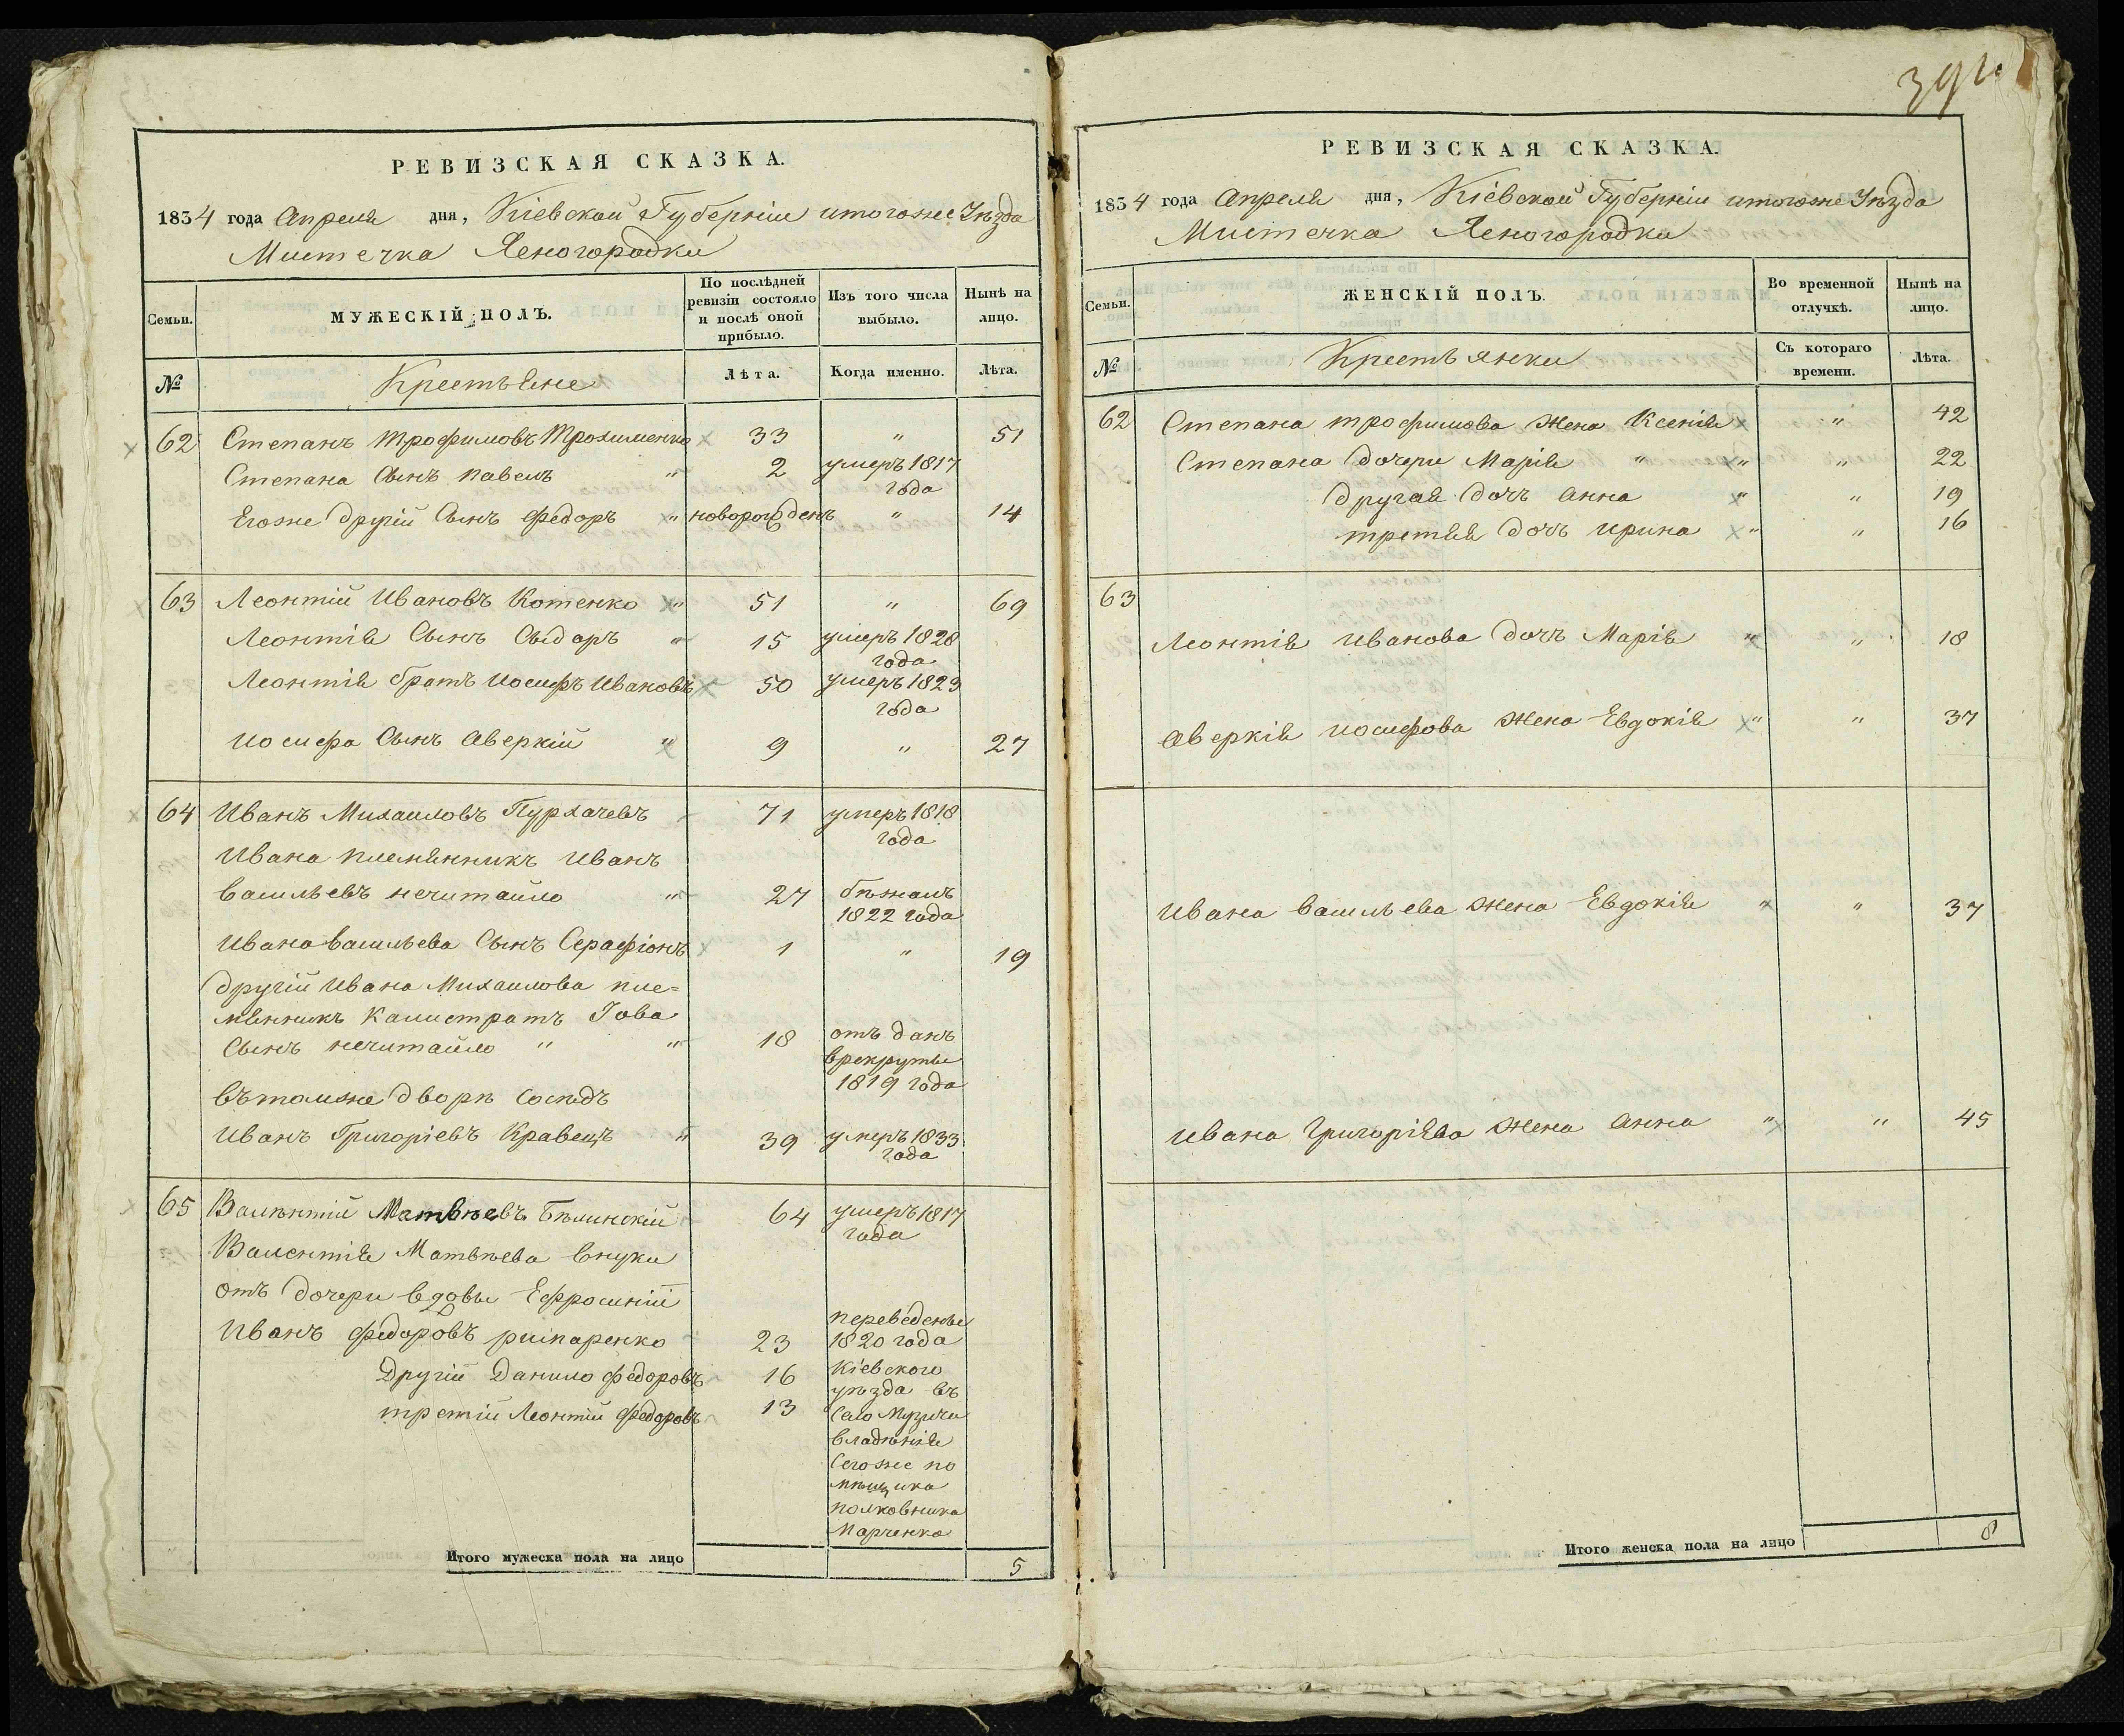 РЕВИЗСКАЯ СКАЗКА.
1834 года Апреля дня, Кіевской Губерніи итогоже Уѣзда
Мистечка Ясногородки
Семьи.
МУЖЕСКІЙ ПОЛЪ.
По послѣдней ревизіи состояло и послѣ оной прибыло.
Изъ того числа выбыло.
Нынѣ на лицо.
№
Крестьяне
Лѣта.
Когда именно.
Лѣта.
62 Степанъ Трофимовъ Трохименко 33 " 51
Степана Сынъ павелъ " 2 умеръ 1817
года
Егоже другій Сынъ федоръ " новорожденъ " 14
63 Леонтій Ивановъ Котенко " 51 " 69
Леонтія Сынъ Сыдоръ " 15 умеръ 1828
года
Леонтія братъ Иосифъ Ивановъ 50 умеръ 1829
года
Иосифа Сынъ Аверкій " 9 " 27
64 Иванъ Михаиловъ 71 умеръ 1818
года
Ивана племянникъ Иванъ
Васильевъ нечитайло " 27 бѣжалъ
1822 года
Ивана васильева Сынъ Серафіонъ 1 " 19
другій Ивана Михаилова пле=
мянникъ Калистратъ Іова
Сынъ нечитайло " " 18 отъ данъ
врекруты
1819 года
вътомже дворѣ Сосѣдъ
Иванъ Григоріевъ Кравецъ " 39 умеръ 1833
года
65 Валентій Матвѣевъ Бѣлинскій 64 умеръ 1817
года
Валентія Матвѣева внуки
отъ дочери вдовы Ефросиніи
Иванъ федоровъ 23 переведены
1820 года
Другій Данило федоровъ 16 Кіевского
уѣзда въ
третій Леонтій федоровъ 13 Село Музичи
владѣнія
Сегоже по
мѣщика
полковника
Марченка
Итого мужеска пола на лицо 5
394
РЕВИЗСКАЯ СКАЗКА.
1834 года Апреля дня, Кіевской Губерніи итогоже Уѣзда
Мистечка Ясногородки
Семьи.
ЖЕНСКІЙ ПОЛЪ.
Во временной отлучкѣ.
Нынѣ на лицо.
№
Крестьянки
Съ котораго времени.
Лѣта.
62 Степана трофимова жена Ксенія " 42
Степана дочери Марія " " " 22
другая дочъ Анна " " 19
третяя дочъ Ирина " " 16
63
Леонтія Иванова дочъ Марія " " 18
Аверкія иосифова жена Евдокія " " 37
Ивана васильева жена Евдокія " " 37
Ивана Григоріява жена Анна " " 45
Итого женска пола на лицо 8